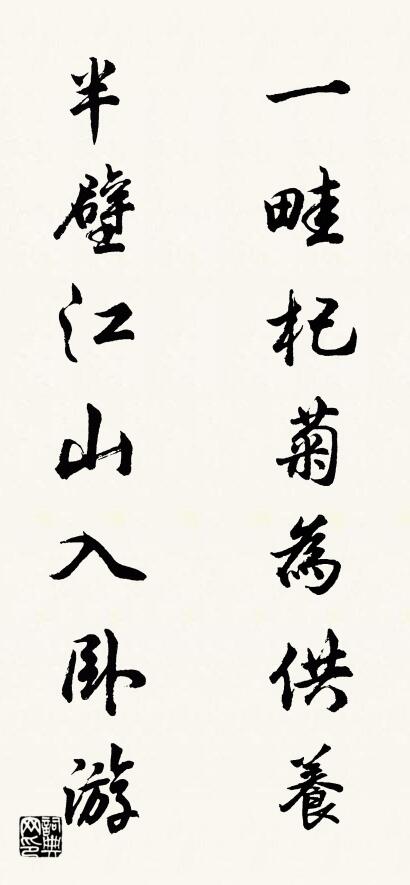 一畦杞菊為供養
半壁江山入卧游
詞典網印